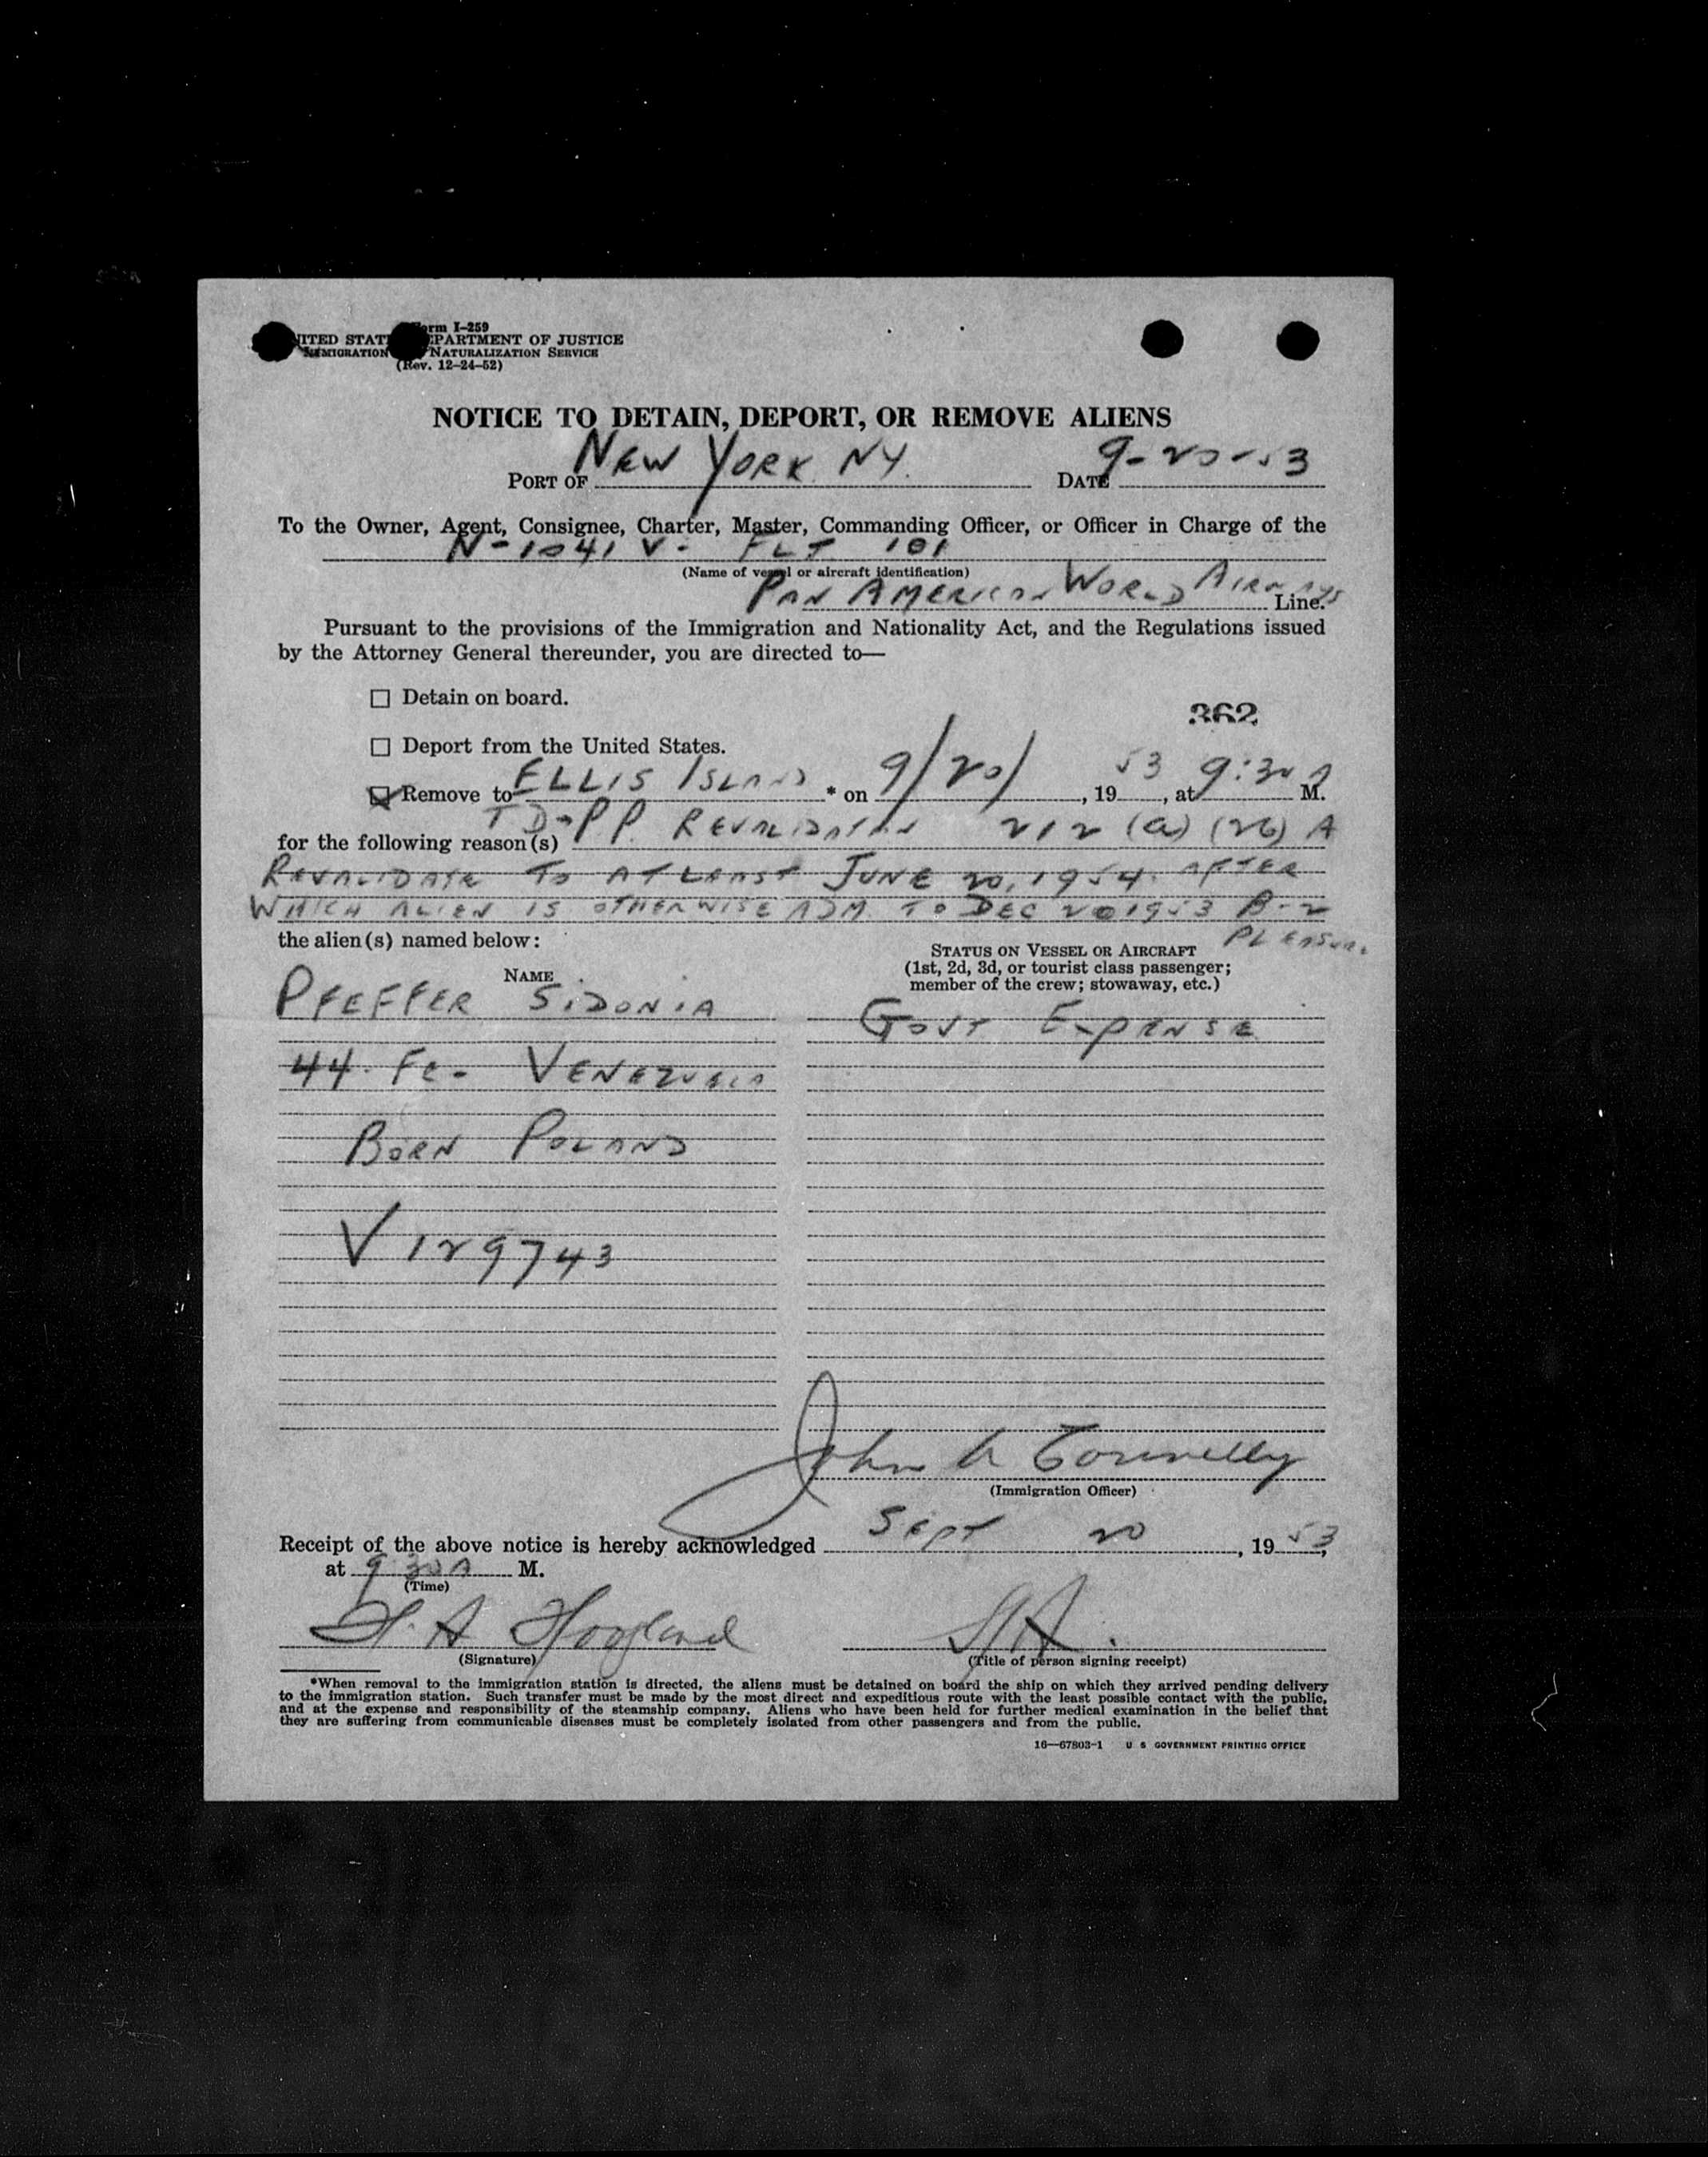 Form I-259
UNITED STATES DEPARTMENT OF JUSTICE
IMMIGRATION NATURALIZATION SERVICE
(Rev. 12-24-52)
NOTICE TO DETAIN, DEPORT, OR REMOVE ALIENS
PORT OF NEW YORK NY. DATE 9-20-53
To the Owner, Agent, Consignee, Charter, Master, Commanding Officer, or Officer in Charge of the
N-1041 V- FLT 101
(Name of vessel or aircraft identification)
PAN AMERICAN WORLD AIRWAYS Line.
Pursuant to the provisions of the Immigration and Nationality Act, and the Regulations issued
by the Attorney General thereunder, you are directed to—
☐ Detain on board.
362
☐ Deport from the United States.
☑ Remove to ELLIS ISLAND * on 9/20/, 1953, at 9:30 A M.
for the following reason(s) TD-PP. REVALIDATION 212 (a) (26) A
REVALIDATE TO AT LEAST JUNE 20, 1954. AFTER
WHICH ALIEN IS OTHERWISE ADM. TO DEC 20 1953 B-2
PLEASURE
the alien(s) named below:
STATUS ON VESSEL OR AIRCRAFT
(1st, 2d, 3d, or tourist class passenger;
member of the crew; stowaway, etc.)
NAME
PFEFFER SIDONIA GOVT EXPENSE
44. Fe- VENEZUELA
BORN POLAND
V 129743
John A Connelly
(Immigration Officer)
Receipt of the above notice is hereby acknowledged SEPT 20, 1953,
at 9 30 A M.
(Time)
H. A Hoogland
(Signature) (Title of person signing receipt)
*When removal to the immigration station is directed, the aliens must be detained on board the ship on which they arrived pending delivery
to the immigration station. Such transfer must be made by the most direct and expeditious route with the least possible contact with the public,
and at the expense and responsibility of the steamship company. Aliens who have been held for further medical examination in the belief that
they are suffering from communicable diseases must be completely isolated from other passengers and from the public.
16—67803-1 U S GOVERNMENT PRINTING OFFICE